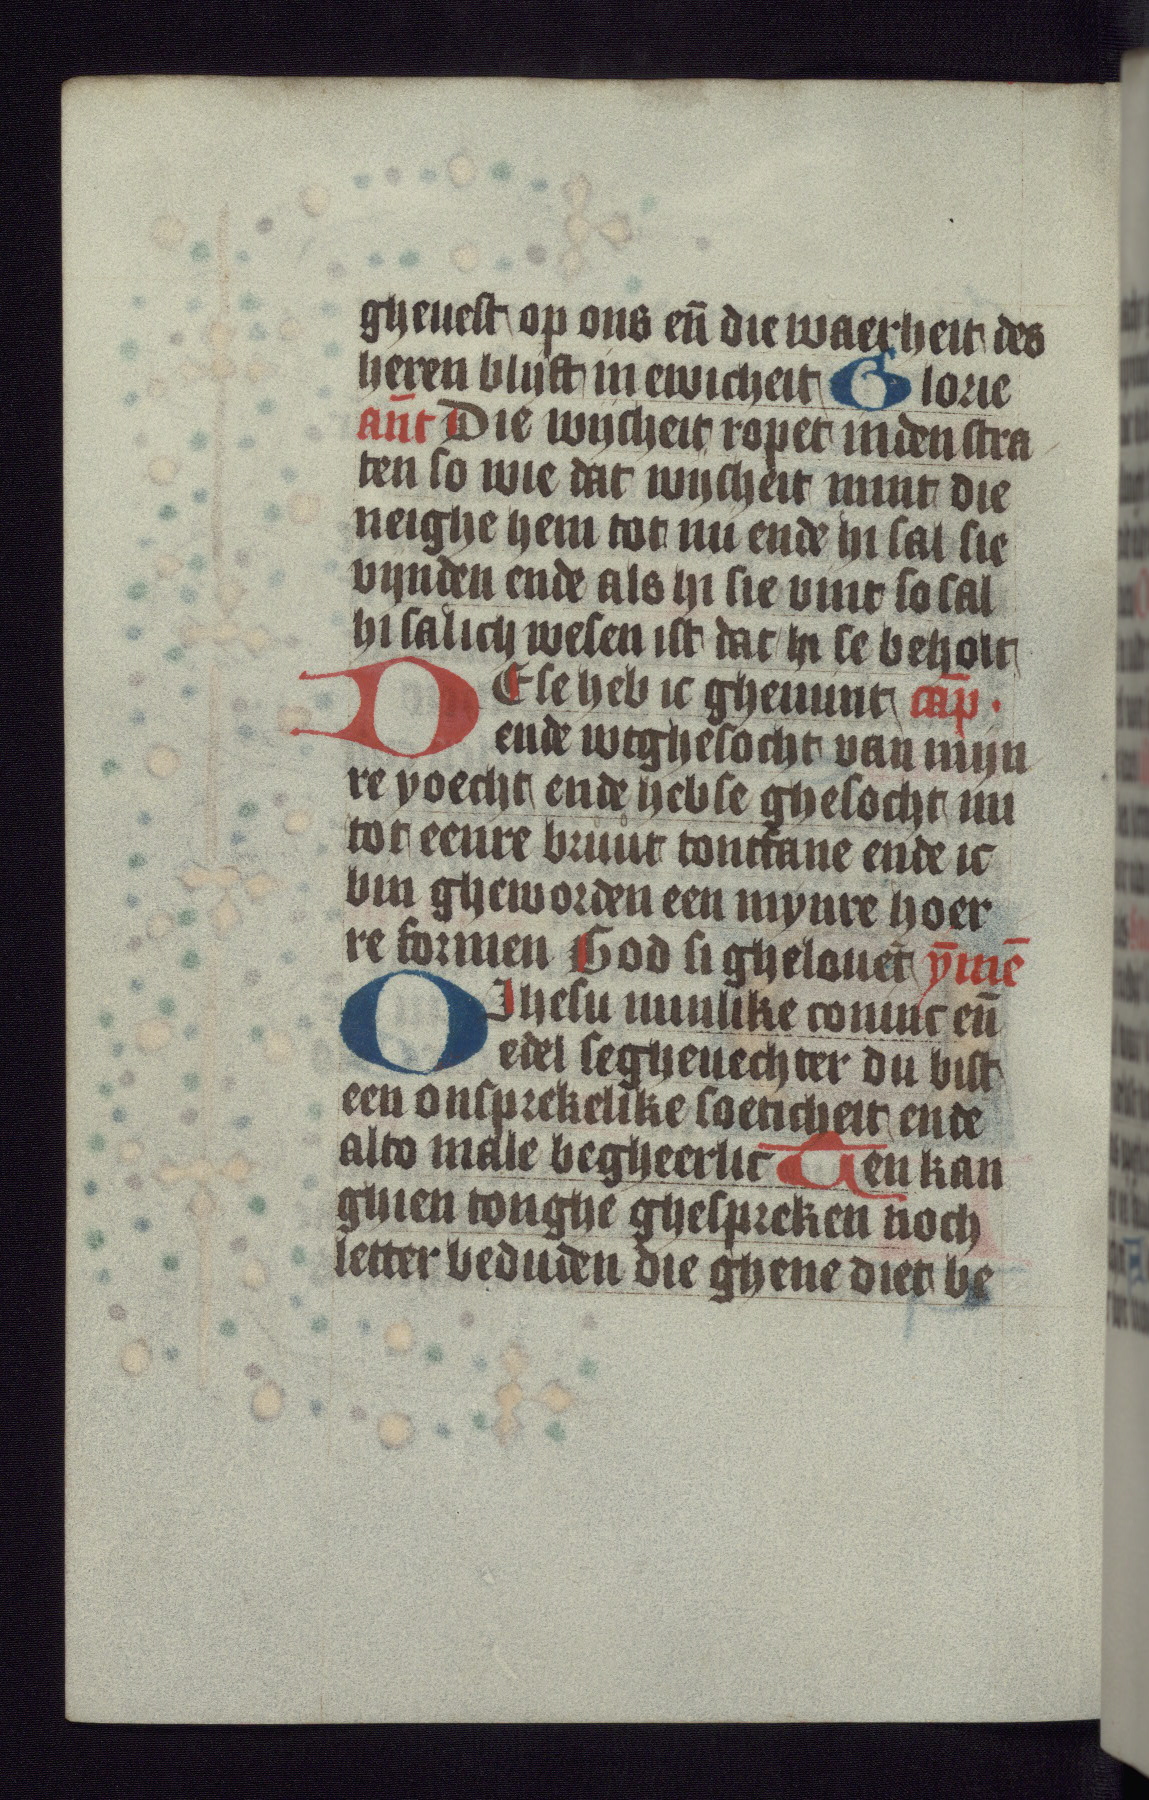 gheuest op ons en̄ die waerheit des
heren blijft in ewicheit Glorie
an̄t Die wijsheit ropet in den stra
ten so wie dat wijsheit mint die
neighe hem tot mi ende hi sal sie
vijnden ende als hi sie vint so sal
hi salich wesen ist dat hi se behoit
DEse heb ic ghemint cap̄.
ende wtghesocht van mijn
re yoecht ende hebse ghesocht mi
tot eenre bruut tontfane ende ic
bin gheworden een mynre hoer
re formen God si ghelouet̄ ȳmē
O Ihesu minlike coninc en̄
edel segheuechter du bist
een onsprekelike soeticheit ende
alto male begheerlic Ten kan
ghien tonghe ghespreken noch
letter beduden die ghene diet be